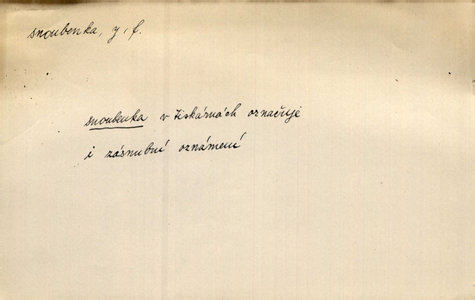 snoubenka, y, f.
snoubenka v tiskárnách označuje
i zásnubní oznámení